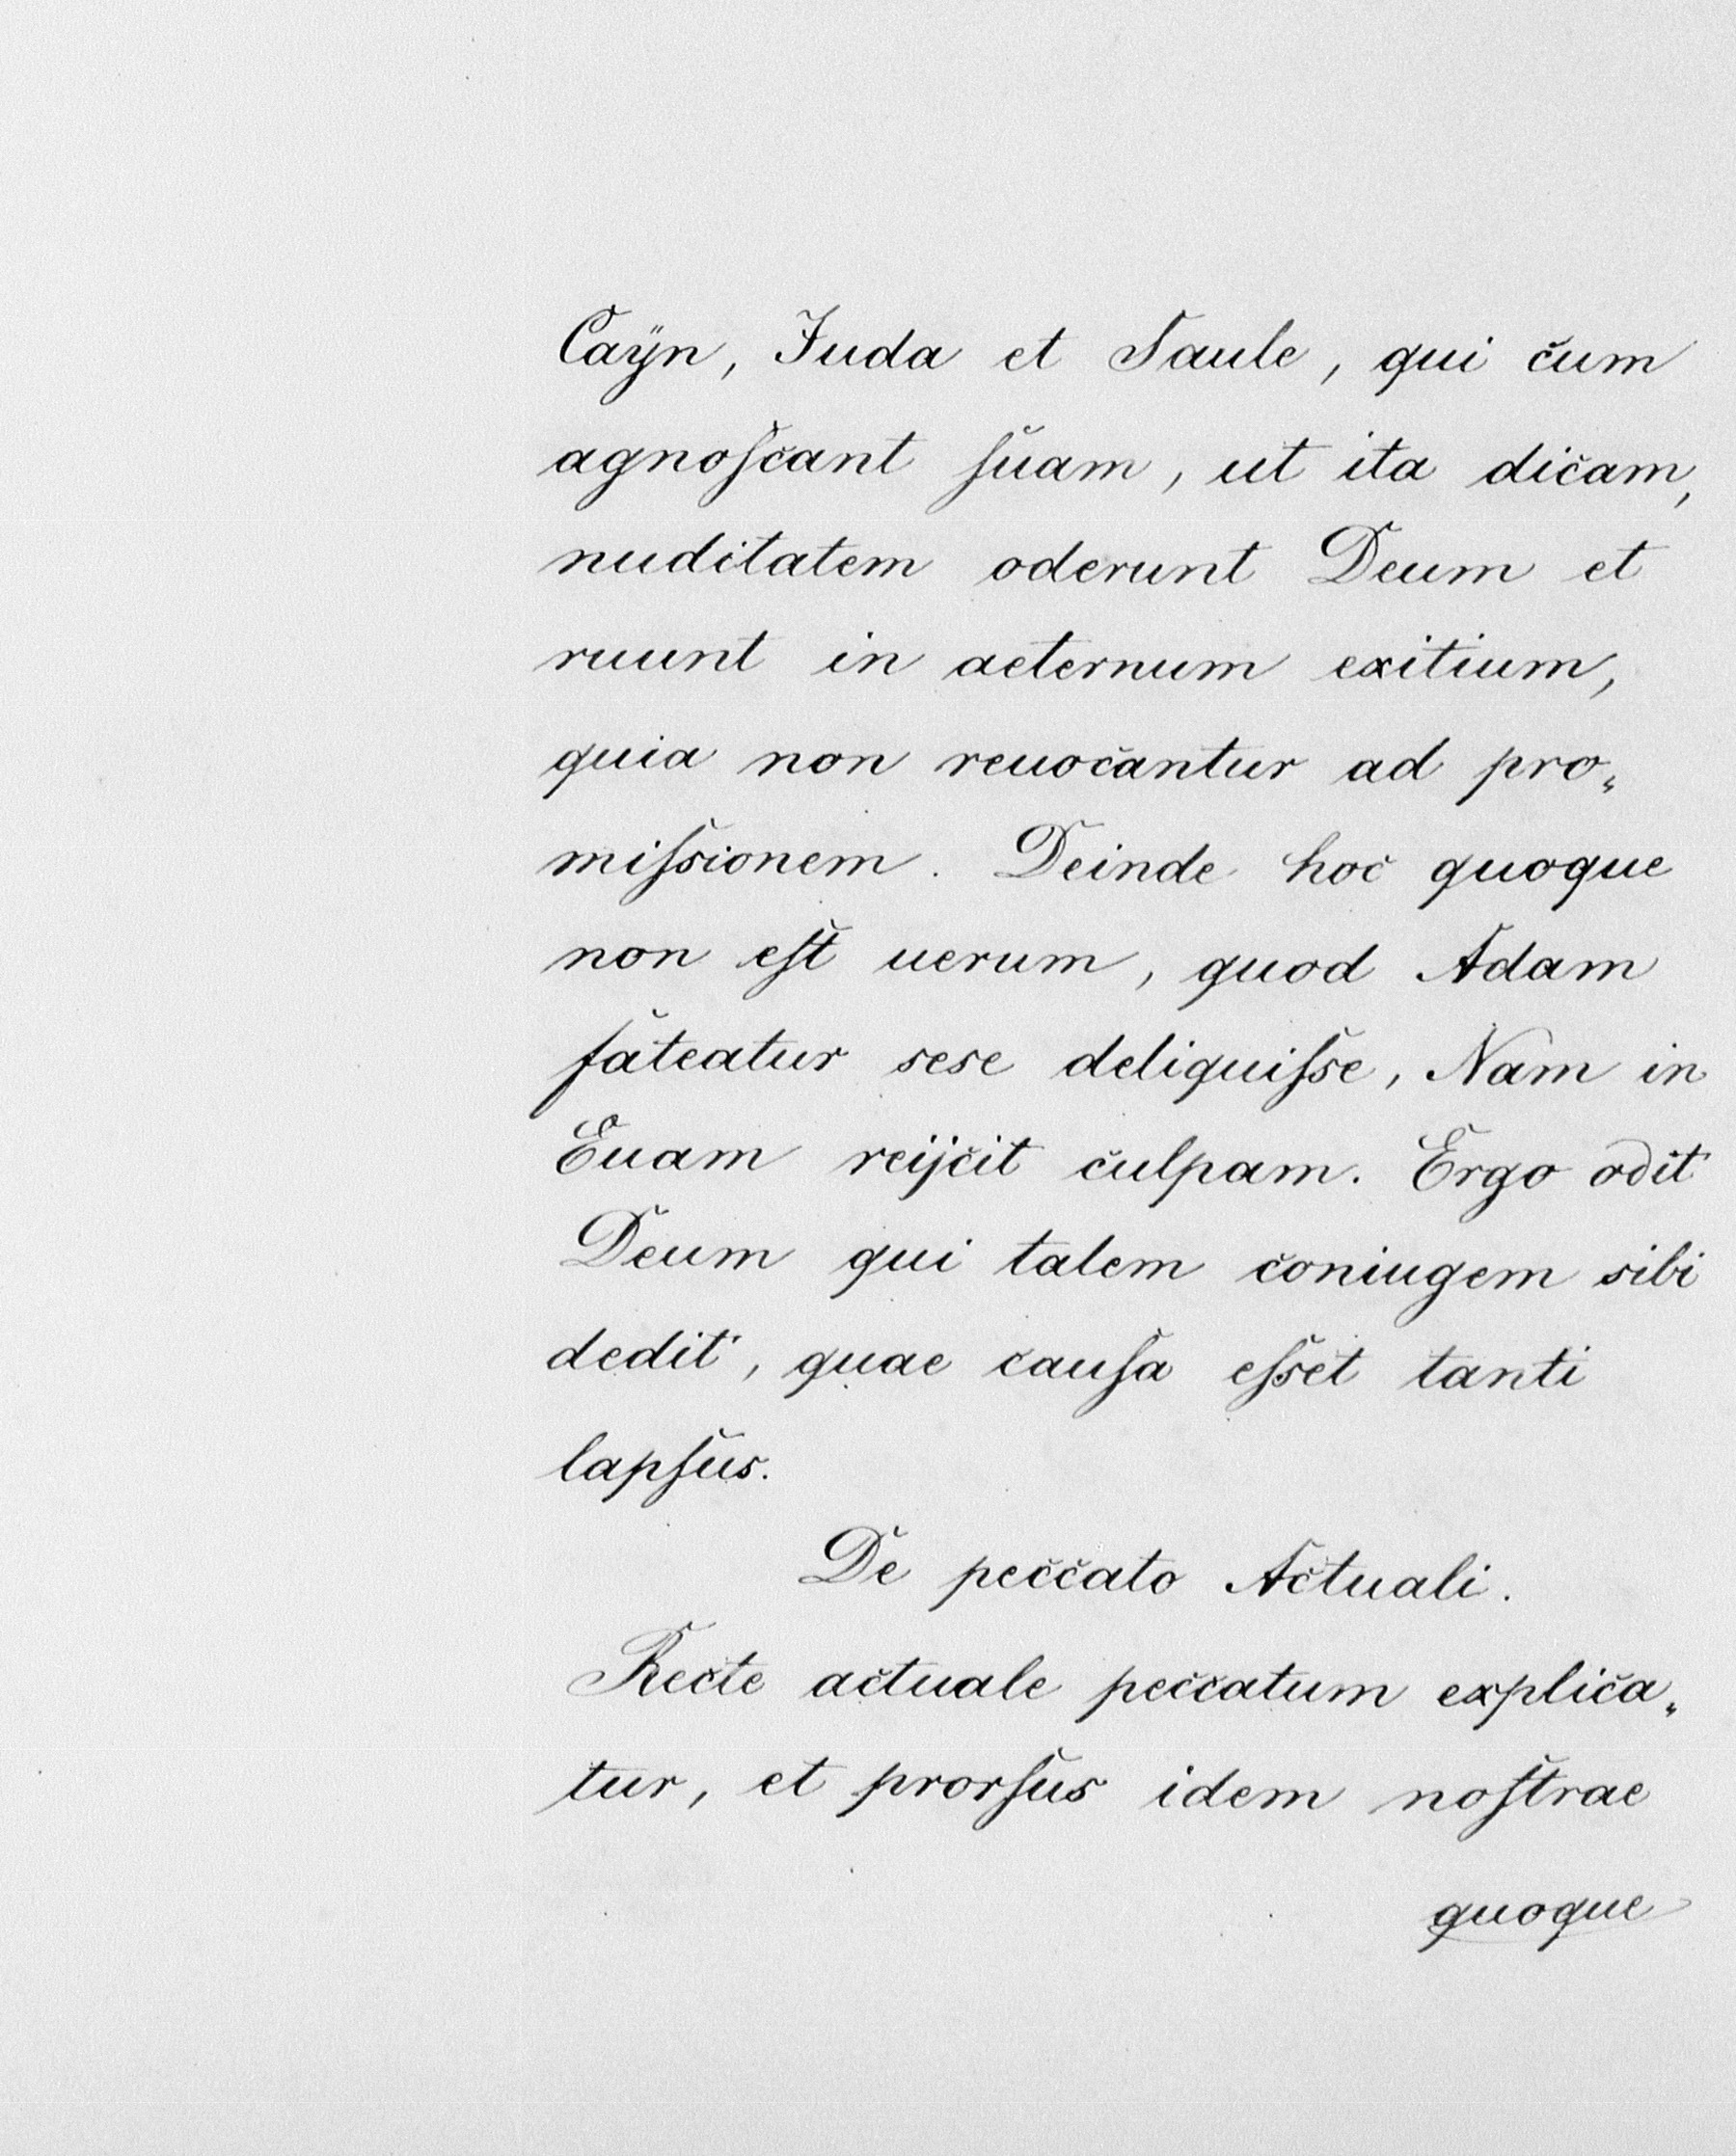 Caÿn, Juda et Saule, qui cum
agnoſcant ſuam, ut ita dicam,
nuditatem oderunt Deum et
ruunt in aeternum exitium,
quia non reuocantur ad pro„
miſsionem. Deinde hoc quoque
non eſt uerum, quod Adam
fateatur sese deliquiſse, Nam in
Euam reijcit culpam. Ergo odit
Deum qui talem coniugem sibi
dedit, quae cauſa eſset tanti
lapſus.
De peccato Actuali.
Recte actuale peccatum explica„
tur, et prorſus idem noſtrae
quoque